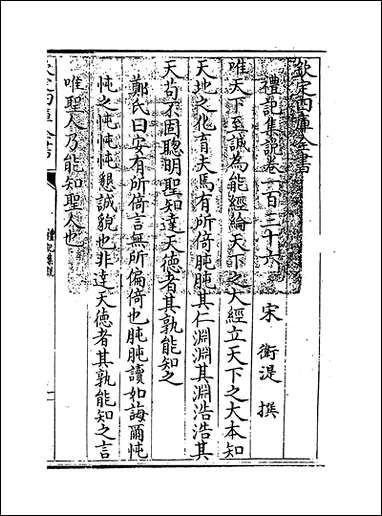 欽定四庫全書
禮記集說卷一百三十六
宋 衛湜 撰
唯天下至誠為能經綸天下之大經立天下之大本知
天地之化育夫焉有所倚肫肫其仁淵淵其淵浩浩其
天苟不固聰明聖知達天德者其孰能知之
鄭氏曰安有所倚言無所偏倚也肫肫讀如誨爾忳
忳之忳忳忳懇誠貌也非達天德者其孰能知之言
唯聖人乃能知聖人也
欽定四庫全書
禮記集說
一